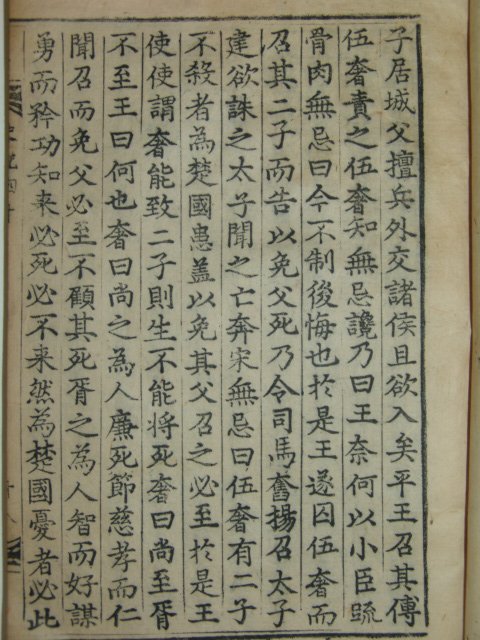 子居城父擅兵外交諸侯且欲入矣平王召其傅
伍奢責之伍奢知無忌讒乃曰王奈何以小臣䟽
骨肉無忌曰今不制後悔也於是王遂囚伍奢而
召其二子而告以免父死乃令司馬奮揚召太子
建欲誅之太子聞之亡奔宋無忌曰伍奢有二子
不殺者為楚國患盖以免其父召之必至於是王
使使謂奢能致二子則生不能將死奢曰尚至胥
不至王曰何也奢曰尚之為人廉死節慈孝而仁
聞召而免父必至不顧其死胥之為人智而好謀
勇而矜功知来必死必不来然為楚國憂者必此